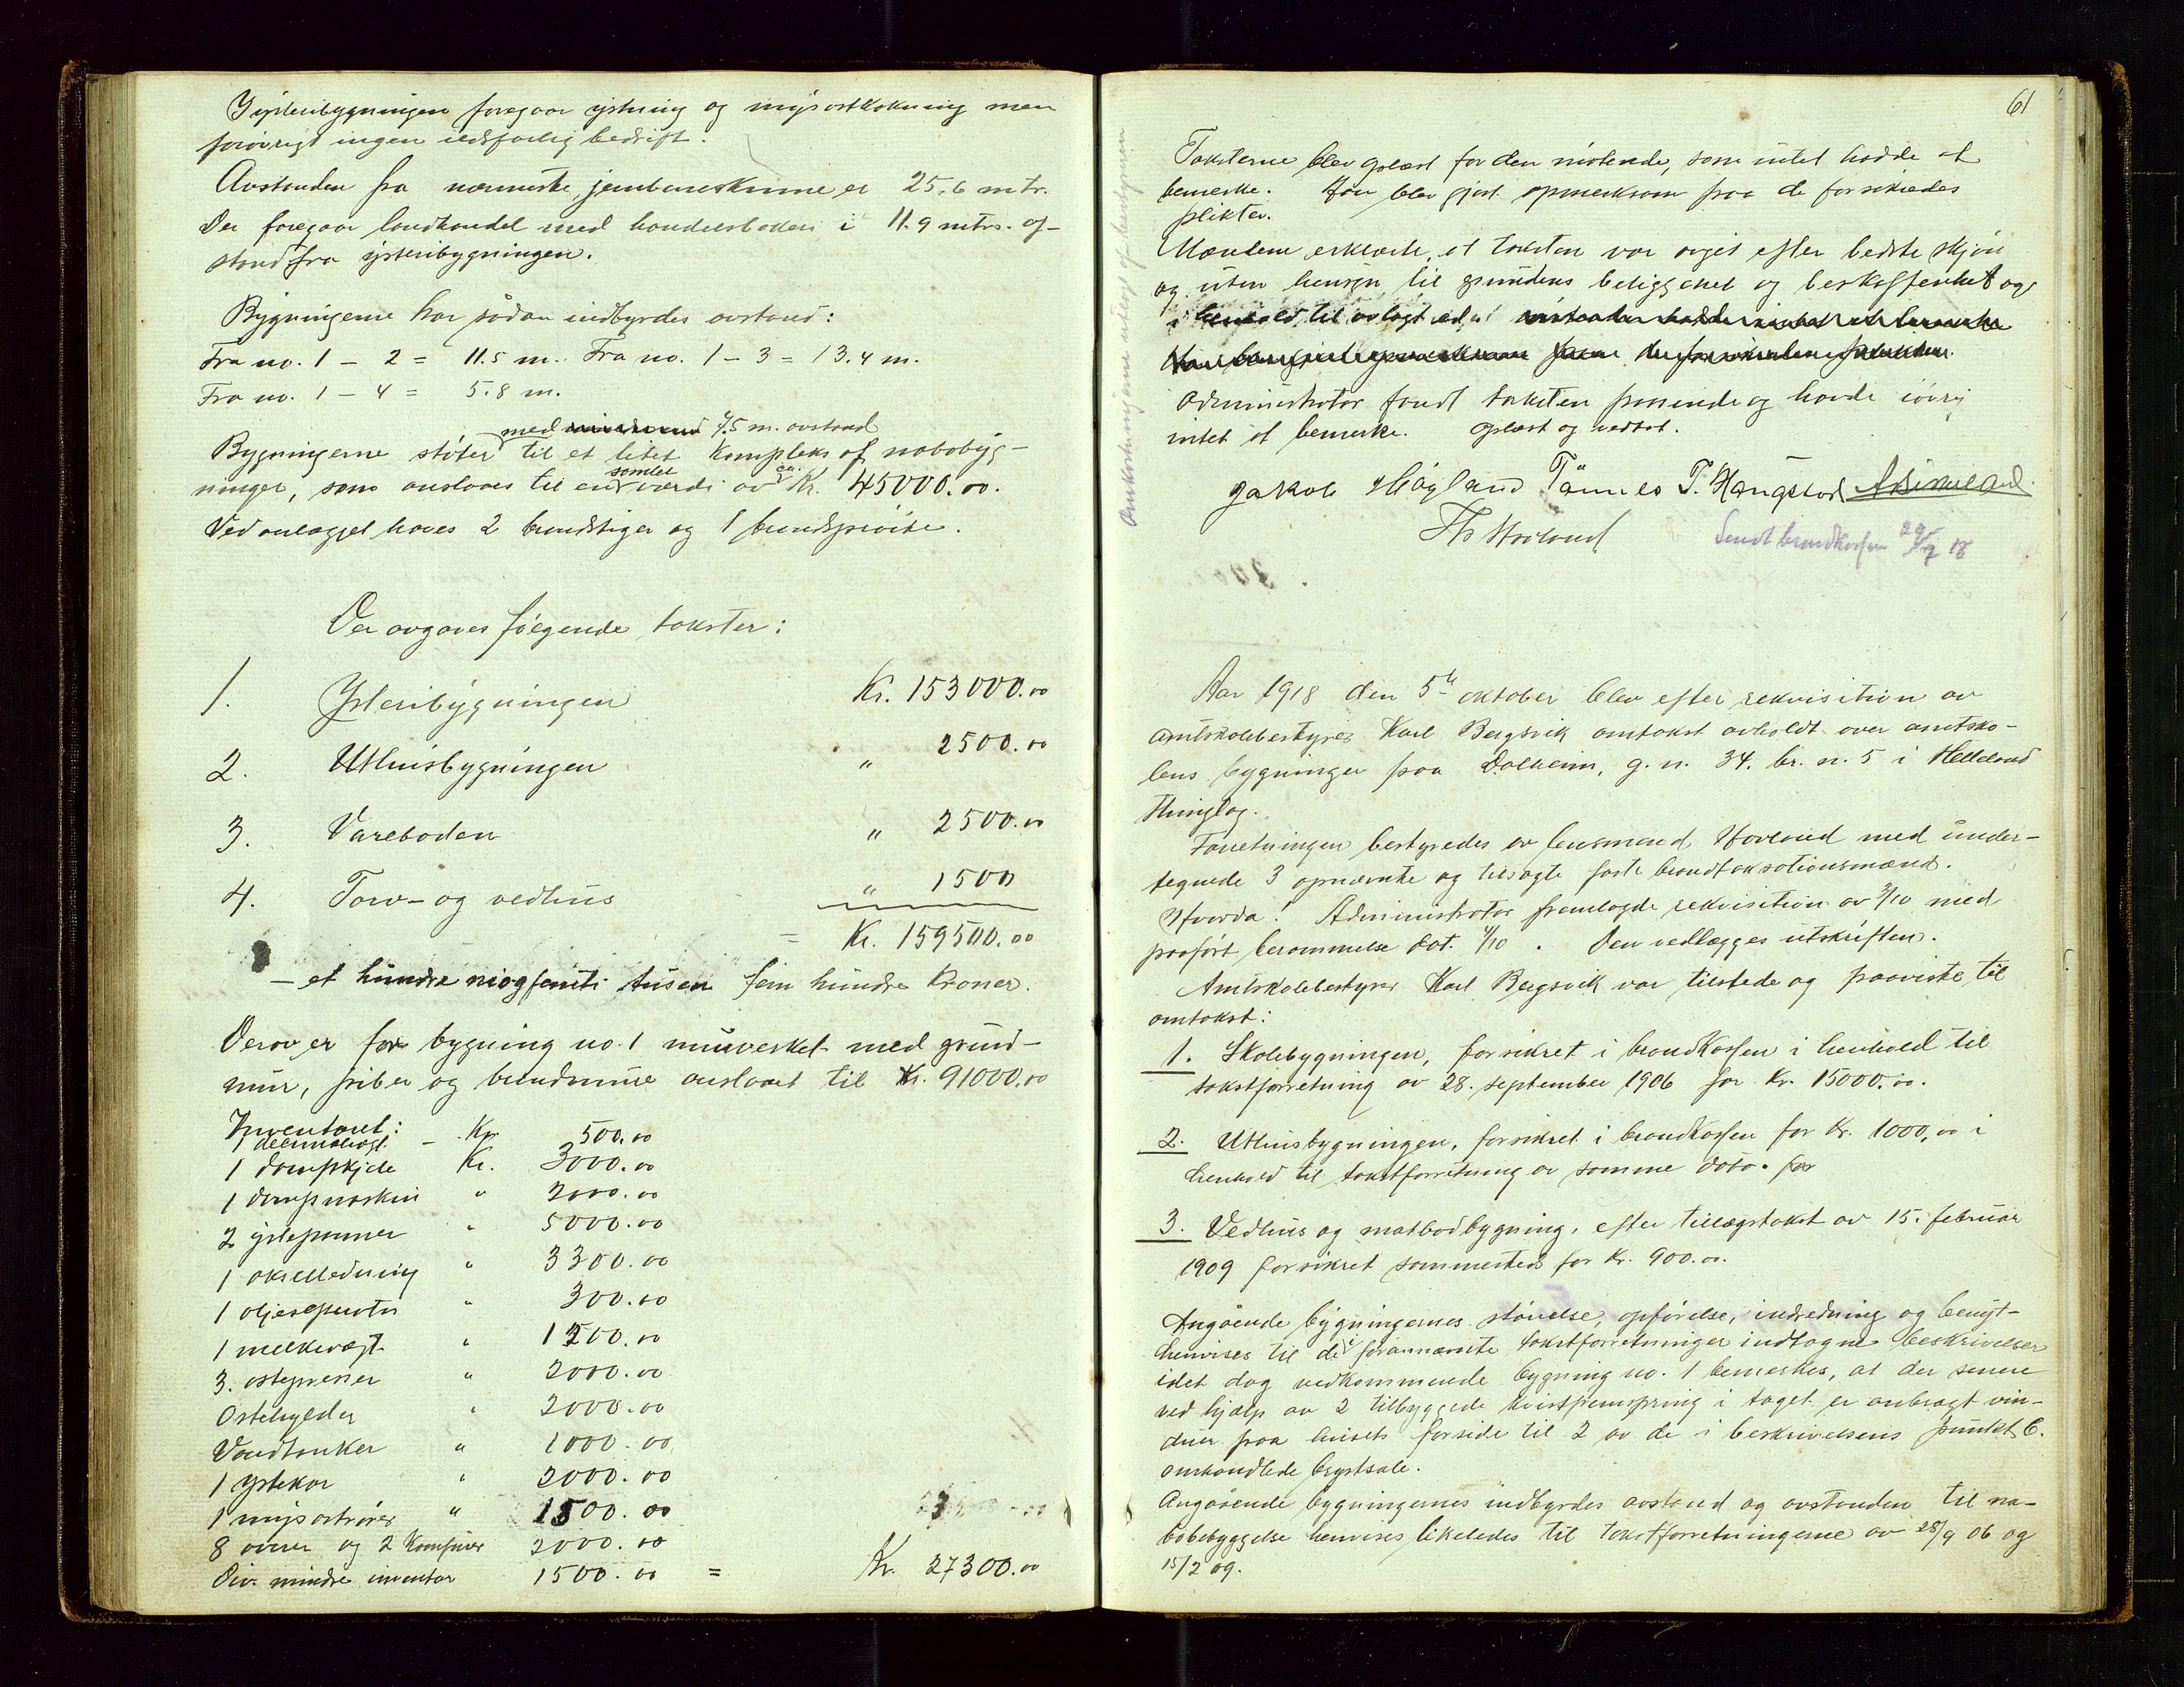 I ysteribygningen foregaar ystning og mysostkokning men
forøvrigt ingen ildsfarlig bedrift.
Avstanden fra nærmeste jernbaneskinne er 25.6 mtr.
Der foregaar landhandel med handelsboden i 11.9 mtrs. af-
stand fra ysteribygningen.
Bygningerne har sådan indbyrdes avstand:
Fra no. 1 - 2 = 11.5 m. Fra no. 1 - 3 = 13.4 m.
Fra no. 1 - 4 = 5.8 m.
med 4.5 m. avstand
Bygningerne støter til et litet kompleks af nabobyg-
samlet ca.
ninger, som anslaaes til en værdi av Kr. 45000.00.
Ved anlægget haves 2 brandstiger og 1 brandsprøite.
Der avgaves følgende takster:
1. Ysteribygningen Kr. 153000.00
2. Uthusbygningen " 2500.00
3. Vareboden " 2500.00
4. Torv- og vedhus " 1500
= Kr. 159500.00
- et hundre niogfemti tusen fem hundre kroner.
Derav er for bygning no. 1 murverket med grund-
mur, piber og brandmure anslaaet til Kr. 91000.00
Inventaret:
1 decimalvægt - Kr. 500.00
1 dampkjele Kr. 3000.00
1 dampmaskin " 2000.00
2 ystepanner " 5000.00
1 akselledning " 3300.00
1 oljeseparator " 300.00
1 melkevægt " 1200.00
3. ostepresser " 2000.00
Ostehylder " 2000.00
Vandtanker " 1000.00
1 ystekar " 2000.00
1 mysostrører " 1500.00
8 ovner og 2 komfurer 2000.00
Div. mindre inventar 1500.00 = Kr. 27300.00
61
Taksterne blev oplæst for den møtende, som intet hadde at
bemerke. Han blev gjort opmerksom paa de forsikredes
plikter.
Mændene erklærte, at taksten var avgit efter bedste skjøn
og uten hensyn til grundens beliggenhet og beskaffenhet og
i henhold til avlagt ed.
Administrator fandt taksten passende og havde iøvrig
intet at bemerke. Oplæst og vedtat.
Jakob Høgland Tønnes T. Haugstad
Hs Hovland
Sendt brandkassen
Omkostningerne utlagt af bestyreren
Aar 1918 den 5te oktober blev efter rekvisition av
amtskolebestyrer Karl Bergsvik omtakst avholdt over amtsko-
lens bygninger paa Dalheim, g.n. 34. br. n. 5 i Helleland
thinglag.
Forretningen bestyredes av lensmand Hovland med under-
tegnede 3 opnævnte og tilsagte faste brandtaksationsmænd.
Hvorda: Administrator fremlagde rekvisition av 3/10 med
paaført berammelse dat. 4/10. Den vedlægges utskriften.
Amtskolebestyrer Karl Bergsvik var tilstede og paaviste til
omtakst:
1. Skolebygningen, forsikret i brandkassen i henhold til
takstforretning av 28. september 1906 for Kr. 15000.00.
2. Uthusbygningen, forsikret i brandkassen for Kr. 1000,00 i
henhold til takstforretning av samme dato. for
3. Vedhus og matbodbygning, efter tillægstakst av 15. februar
1909 forsikret sammesteds for Kr. 900.00.
Angående bygningernes størrelse, opførelse, indredning og benyt-
henvises til de i forannævnte takstforretninger indtagne beskrivelser
idet dog vedkommende bygning no. 1 bemerkes, at der senere
ved hjælp av 2 tilbyggede kvistfremspring i taget er anbragt vin-
duer paa husets forside til 2 av de i beskrivelsens punkt 6.
omhandlede
Angående bygningernes indbyrdes avstand og avstanden til na-
bobebyggelse henvises likeledes til takstforretningerne av 28/9 06 og
15/2 09.